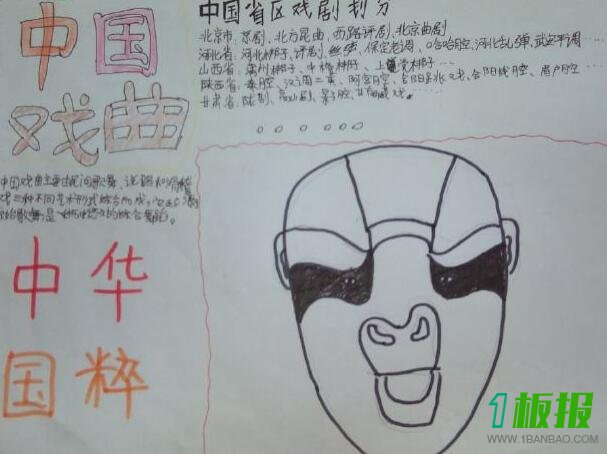 中国
戏曲
中国省区戏剧划分
北京市：京剧、北方昆曲、西路评剧、北京曲剧
河北省：河北梆子、评剧、丝弦、保定老调、哈哈腔、河北乱弹、武安平调…
山西省：蒲州梆子、中路梆子、上党梆子…
陕西省：秦腔、汉调二黄、阿宫腔、合阳跳戏、合阳线腔、眉户…
甘肃省：陇剧、高山剧、影子腔、
中国戏曲主要由民间歌舞、说唱和滑稽
戏三种不同艺术形式综合而成，
中华
国粹
1板报
WWW.1BANBAO.COM